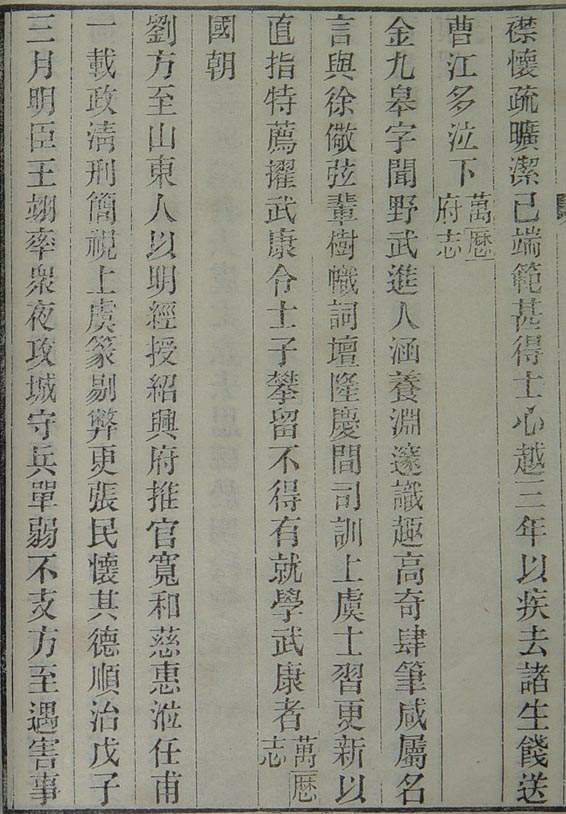 襟懷疏曠潔已端範甚得士心越三年以疾去諸生餞送
曹江多泣下萬曆府志
金九皋字聞野武進人涵養淵邃識趣高奇肆筆咸屬名
言與徐儆弦輩樹幟詞壇隆慶間司訓上虞士習更新以
直指特薦擢武康令士子攀留不得有就學武康者萬曆志
國朝
劉方至山東人以明經授紹興府推官寬和慈惠涖任甫
一載政淸刑簡視上虞篆剔弊更張民懷其德順治戊子
三月明臣王翊率衆夜攻城守兵單弱不支方至遇害事